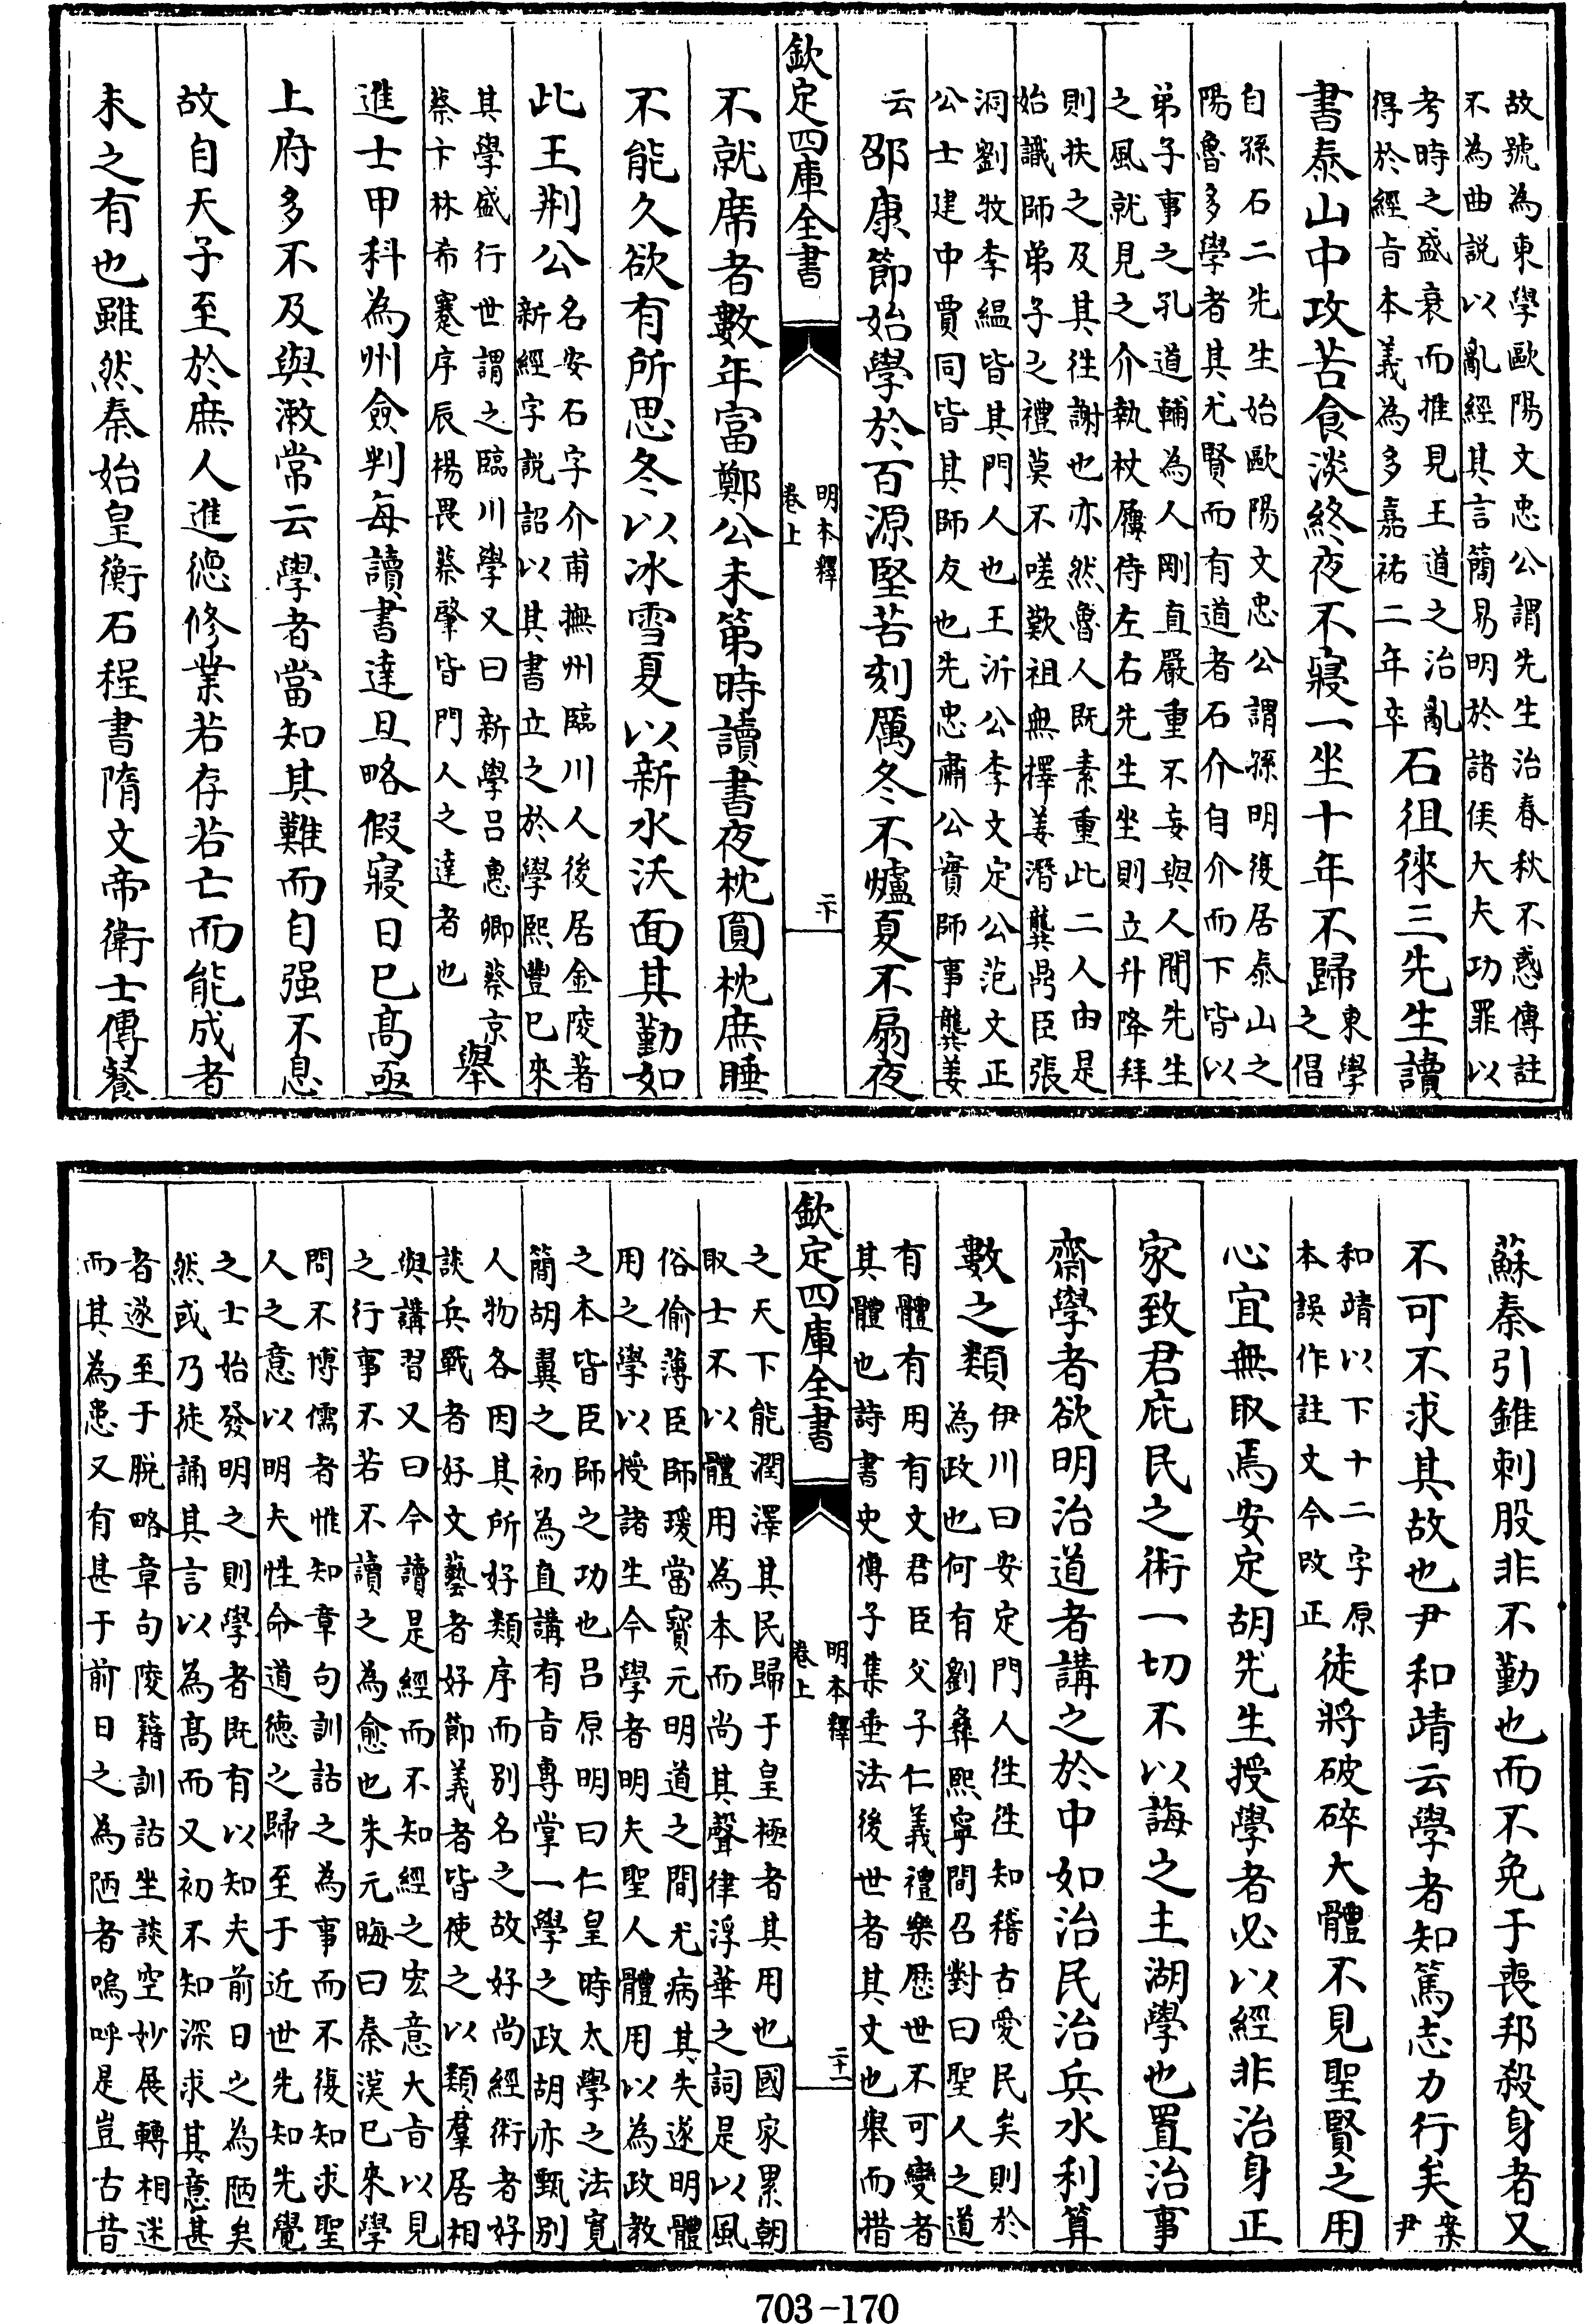 故號為東學歐陽文忠公謂先生治春秋不惑傳註
不為曲説以亂經其言簡易明於諸侯大夫功罪以
考時之盛衰而推見王道之治亂
得於經㫖本義為多嘉祐二年卒
石徂徠三先生讀
書泰山中攻苦食淡終夜不寢一坐十年不歸
東學
之倡
自孫石二先生始歐陽文忠公謂孫明復居泰山之
陽魯多學者其尤賢而有道者石介自介而下皆以
弟子事之孔道輔為人剛直嚴重不妄與人聞先生
之風就見之介執杖屨侍左右先生坐則立升降拜
則扶之及其徃謝也亦然魯人既素重此二人由是
始識師弟子之禮莫不嗟歎祖無擇姜潛龔鼎臣張
洞劉牧李緼皆其門人也王沂公李文定公范文正
公士建中賈同皆其師友也先忠肅公實師事龔姜
云
邵康節始學於百源堅苦刻厲冬不爐夏不扇夜
欽定四庫全書
明本釋
卷上
二十
不就席者數年富鄭公未第時讀書夜枕圓枕庶睡
不能久欲有所思冬以冰雪夏以新水沃面其勤如
此王荆公
名安石字介甫撫州臨川人後居金陵著
新經字説詔以其書立之於學熙豐已來
其學盛行世謂之臨川學又曰新學吕惠卿蔡京
蔡卞林希蹇序辰楊畏蔡肇皆門人之達者也
舉
進士甲科為州僉判每讀書達旦略假寢日已髙亟
上府多不及與潄常云學者當知其難而自强不息
故自天子至於庶人進德修業若存若亡而能成者
未之有也雖然秦始皇衡石程書隋文帝衛士傳餐
蘇秦引錐刺股非不勤也而不免于喪邦殺身者又
不可不求其故也尹和靖云學者知篤志力行矣
案
尹
和靖以下十二字原
本誤作註文今改正
徒將破碎大體不見聖賢之用
心宜無取焉安定胡先生授學者必以經非治身正
家致君庇民之術一切不以誨之主湖學也置治事
齋學者欲明治道者講之於中如治民治兵水利算
數之類
伊川曰安定門人徃徃知稽古愛民矣則於
為政也何有劉彝熙寧間召對曰聖人之道
有體有用有文君臣父子仁義禮樂厯世不可變者
其體也詩書史傳子集垂法後世者其文也舉而措
欽定四庫全書
明本釋
卷上
二十一
之天下能潤澤其民歸于皇極者其用也國家累朝
取士不以體用為本而尚其聲律浮華之詞是以風
俗偷薄臣師瑗當寳元明道之間尤病其失遂明體
用之學以授諸生今學者明夫聖人體用以為政教
之本皆臣師之功也吕原明曰仁皇時太學之法寛
簡胡翼之初為直講有㫖專掌一學之政胡亦甄别
人物各因其所好類序而别名之故好尚經術者好
談兵戰者好文藝者好節義者皆使之以類羣居相
與講習又曰今讀是經而不知經之宏意大㫖以見
之行事不若不讀之為愈也朱元晦曰秦漢已來學
問不博儒者惟知章句訓詁之為事而不復知求聖
人之意以明夫性命道德之歸至于近世先知先覺
之士始發明之則學者既有以知夫前日之為陋矣
然或乃徒誦其言以為髙而又初不知深求其意甚
者遂至于脱略章句陵籍訓詁坐談空妙展轉相迷
而其為患又有甚于前日之為陋者嗚呼是豈古昔
703-170